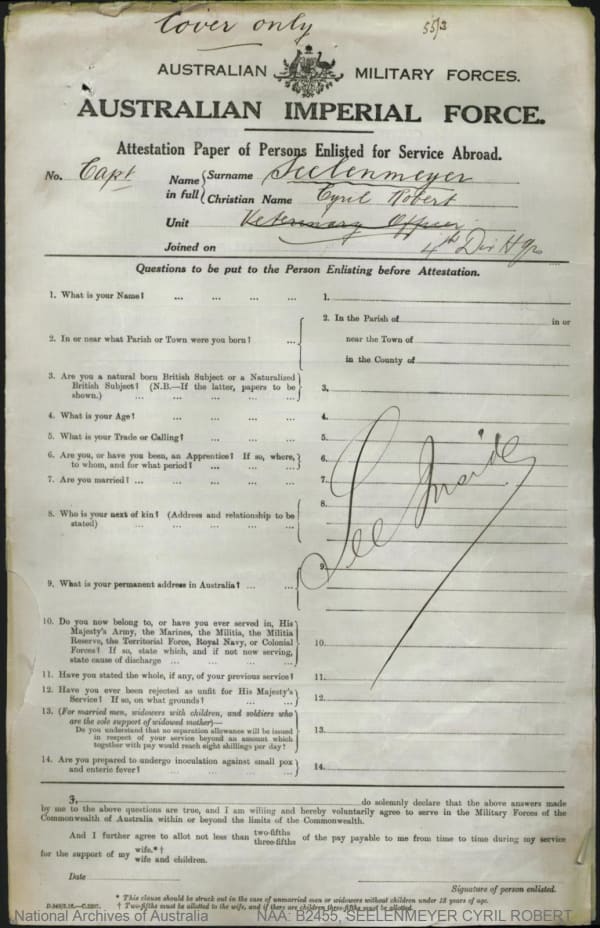 Cover only
55/3
AUSTRALIAN MILITARY FORCES.
AUSTRALIAN IMPERIAL FORCE.
Attestation Paper of Persons Enlisted for Service Abroad.
No. Capt Name in full { Surname Seelenmeyer
Christian Name Cyril Robert
Unit Veterinary Officer
Joined on 4th Div Hqrs
Questions to be put to the Person Enlisting before Attestation.
1. What is your Name? ... ... ... ... 1.
2. In or near what Parish or Town were you born? ... 2. In the Parish of in or
near the Town of
in the County of
3. Are you a natural born British Subject or a Naturalized
British Subject? (N.B.—If the latter, papers to be
shown.) ... ... ... ... 3.
4. What is your Age? ... ... ... 4.
5. What is your Trade or Calling? ... ... ... 5.
6. Are you, or have you been, an Apprentice? If so, where,
to whom, and for what period? ... ... ... 6.
7. Are you married? ... ... ... ... 7.
8. Who is your next of kin? (Address and relationship to be
stated) ... ... ... ... 8.
See Inside
9. What is your permanent address in Australia? ... ... 9.
10. Do you now belong to, or have you ever served in, His
Majesty's Army, the Marines, the Militia, the Militia
Reserve, the Territorial Force, Royal Navy, or Colonial
Forces? If so, state which, and if not now serving,
state cause of discharge ... ... ... 10.
11. Have you stated the whole, if any, of your previous service? 11.
12. Have you ever been rejected as unfit for His Majesty's
Service? If so, on what grounds? ... ... 12.
13. (For married men, widowers with children, and soldiers who
are the sole support of widowed mother)—
Do you understand that no separation allowance will be issued
in respect of your service beyond an amount which
together with pay would reach eight shillings per day? 13.
14. Are you prepared to undergo inoculation against small pox
and enteric fever? ... ... ... ... 14.
I, do solemnly declare that the above answers made
by me to the above questions are true, and I am willing and hereby voluntarily agree to serve in the Military Forces of the
Commonwealth of Australia within or beyond the limits of the Commonwealth.
And I further agree to allot not less than two-fifths three-fifths of the pay payable to me from time to time during my service
for the support of my wife.*† wife and children.
Date
Signature of person enlisted.
* This clause should be struck out in the case of unmarried men or widowers without children under 18 years of age.
† Two-fifths must be allotted to the wife, and if there are children three-fifths must be allotted.
National Archives of Australia NAA: B2455, SEELENMEYER CYRIL ROBERT